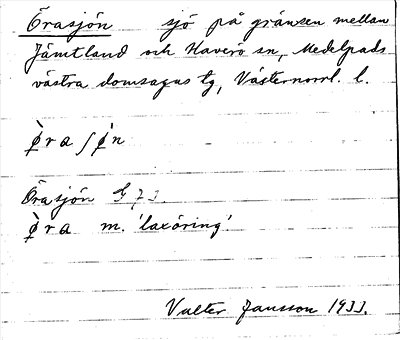 Örasjön sjö på gränsen mellan
Jämtland och Haverö sn, Medelpads
västra domsagas tg, Västernorrl. l.
ø̀ra ʃø̀n
Örasjön G 73
ø̀ra m. 'laxöring'
Valter Jansson 1933.